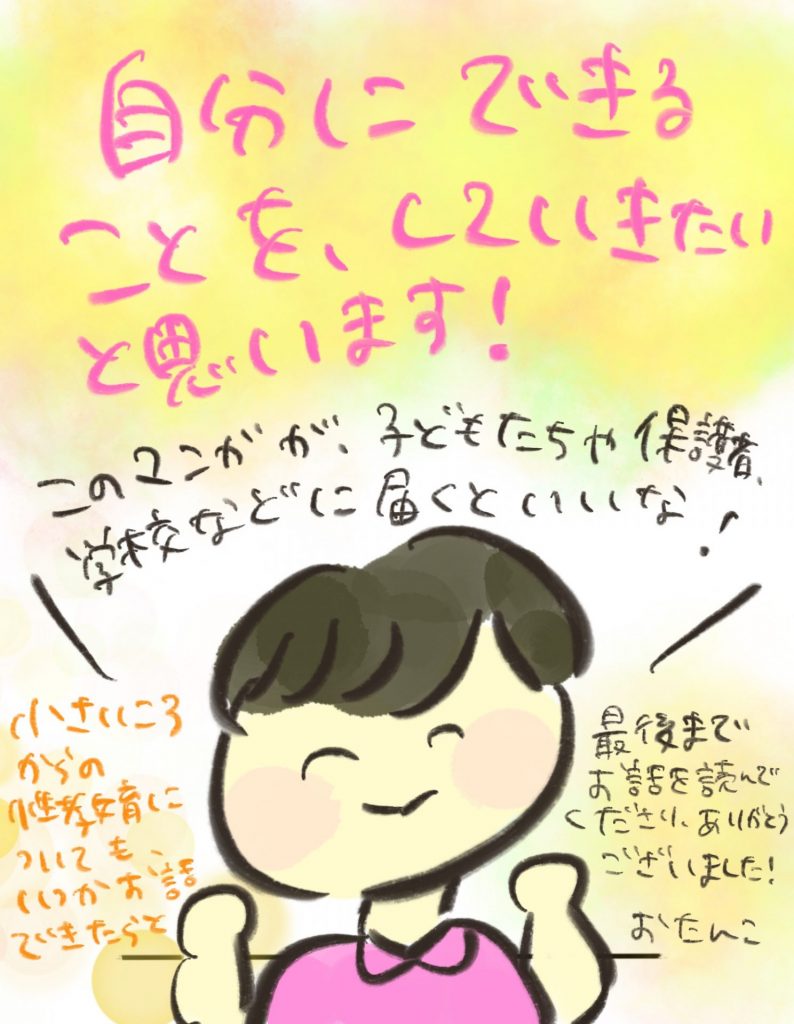 自分にできる
ことを、していきたい
と思います!
このマンガが、子どもたちや保護者、
学校などに届くといいな!
小さいころ
からの
性教育に
ついても、
いつかお話
できたらと
最後まで
お話を読んで
くださり、ありがとう
ございました!
おたんこ